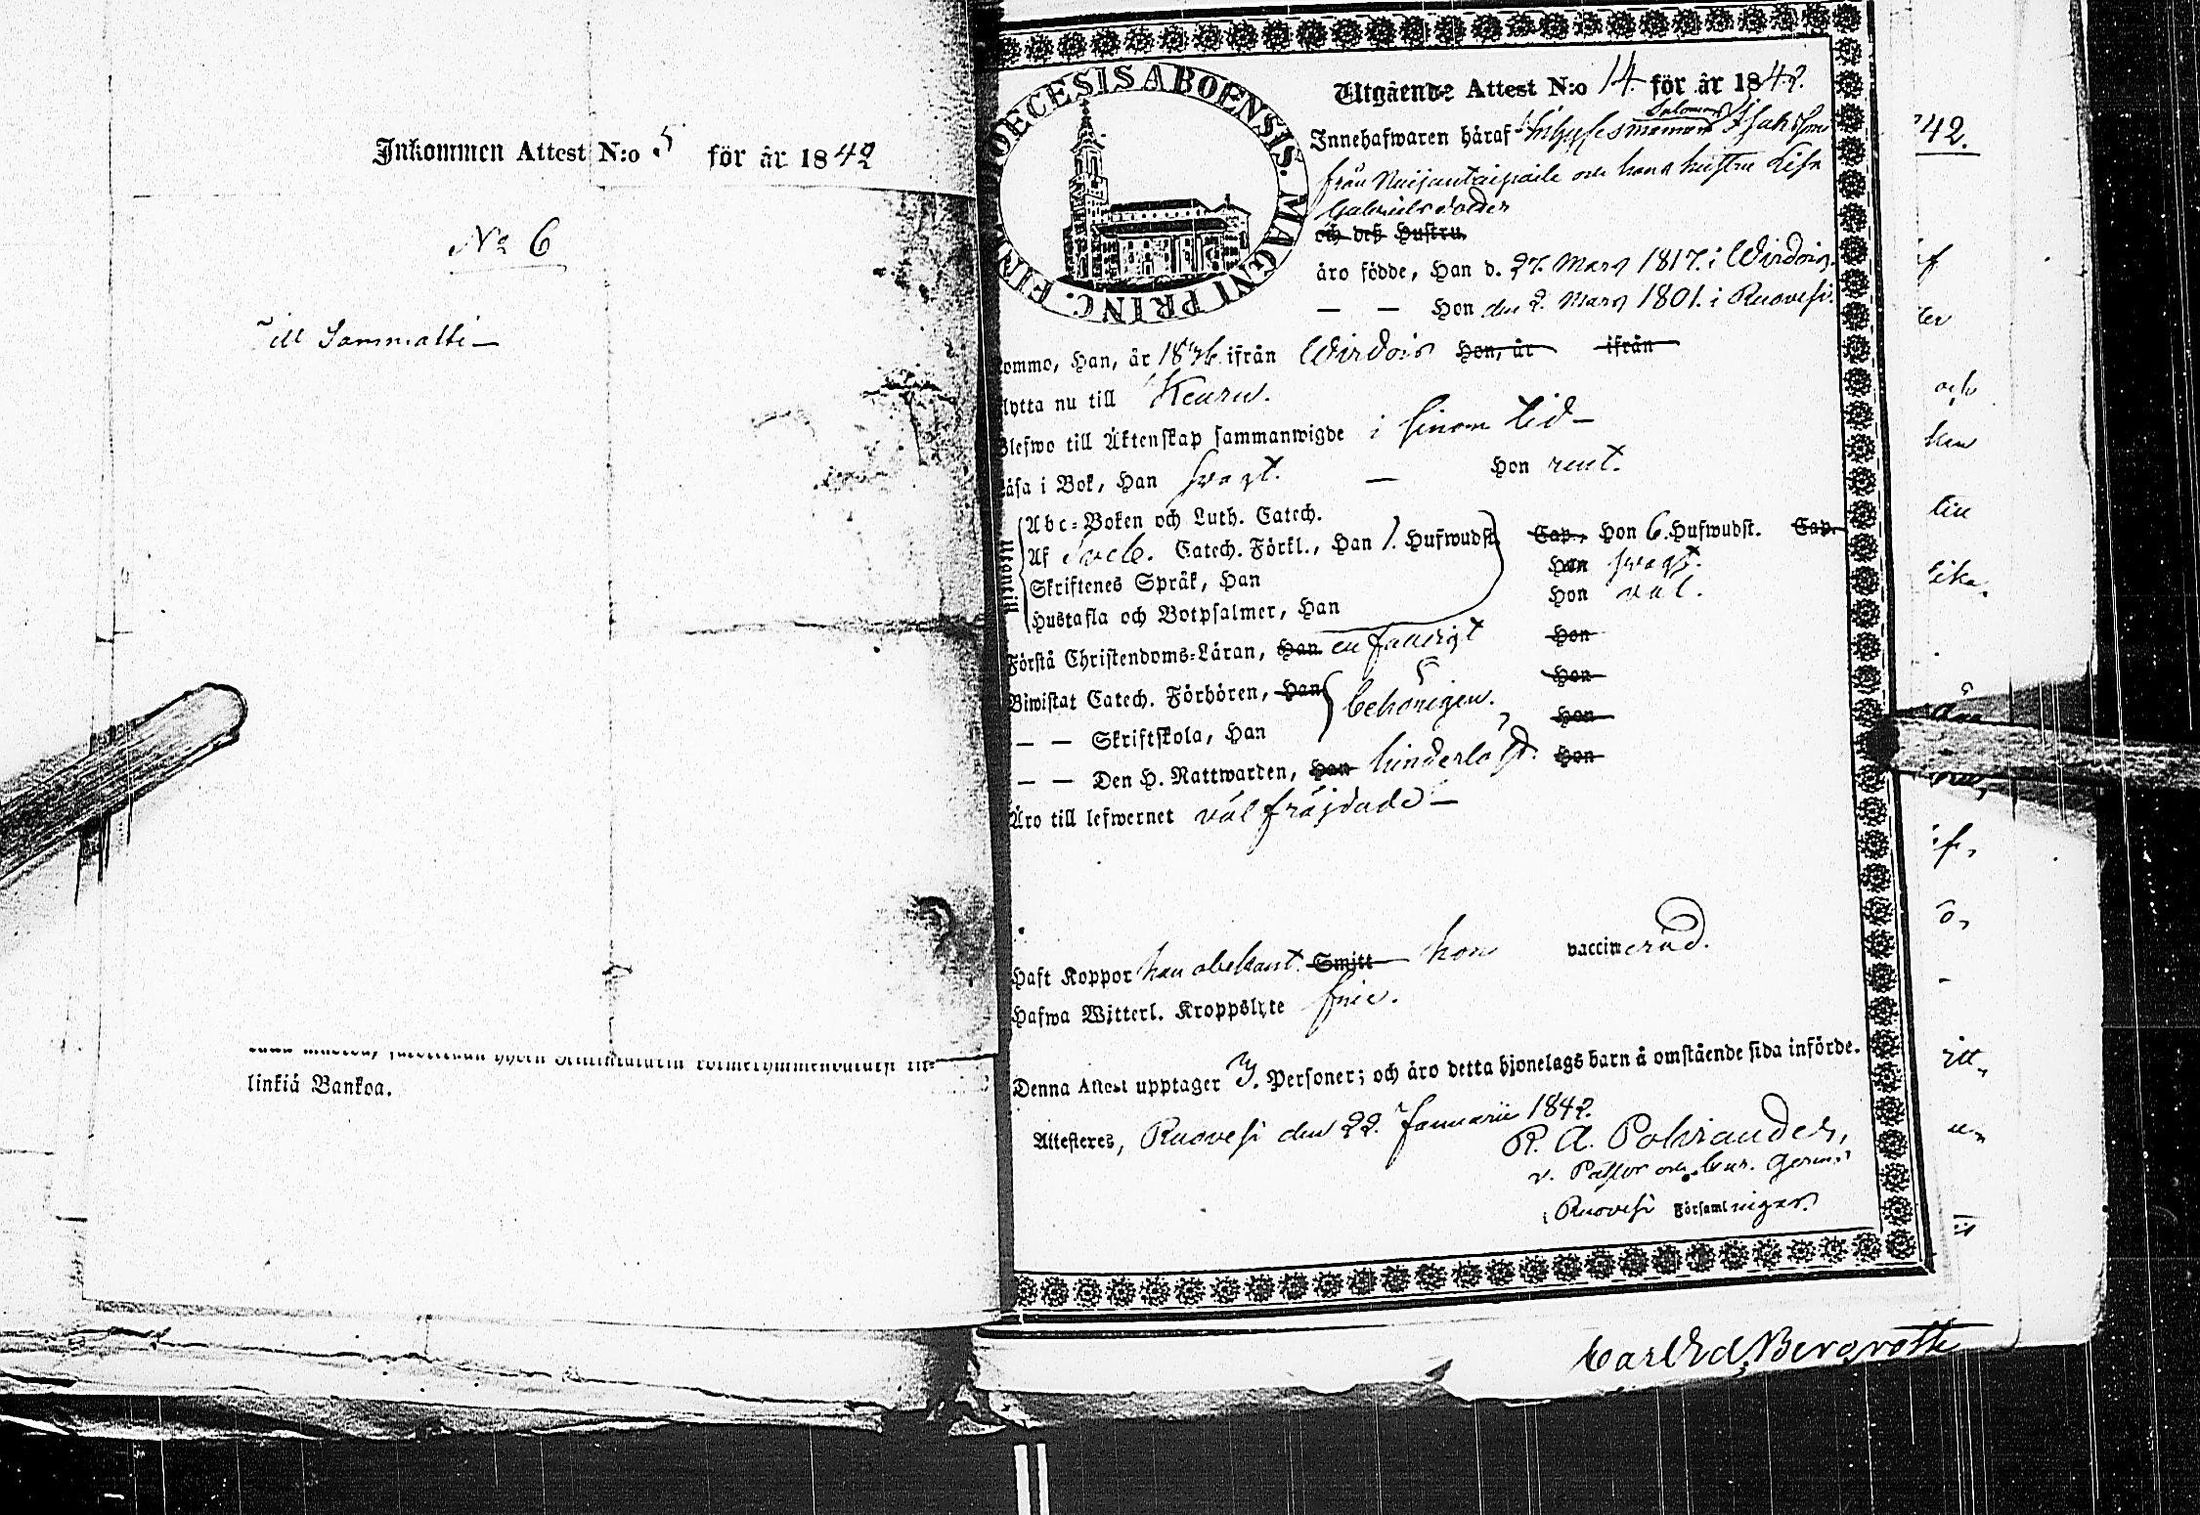 Inkommen Attest N:o 5 för år 1842
No 6
Till Sammatti
linkiä Bankoa.
DIOECESIS ABOENSIS. MAGNI PRINC. FIN
Utgående Attest N:o 14. för år 1842.
Innehafwaren häraf Inhysesmannen Salomon Isaksson
från Ruijantaipale och hans hustru Lisa
Gabrielsdotter
och deß Hustru.
äro födde, Han d. 27. Mars 1817. i Wirdois.
— — Hon den 2. Mars 1801. i Ruovesi.
kommo, Han, år 1836 ifrån Wirdois Hon, år ifrån
flytta nu till Keuru.
Blefwo till Äktenskap sammanwigde i sinom tid —
Läsa i Bok, Han swagt. — Hon rent.
Utantill
Abc-Boken och Luth. Catech.
Af Sveb. Catech. Förkl., Han 1. Hufwudst. Cap., Hon 6. Hufwudst. Cap.
Skriftenes Språk, Han Hon swagt.
Hustafla och Botpsalmer, Han Hon väl.
Förstå Christendoms-Läran, Han enfaldigt Hon
Biwistat Catech. Förhören, Han behörigen. Hon
— — Skriftskola, Han Hon
— — Den H. Nattwarden, Han hinderlöst. Hon
Äro till lefwernet välfräjdade —
Haft Koppor han obekant. Smitt hon vaccinerad.
Hafwa Witterl. Kroppslyte frie.
Denna Attest upptager 3. Personer; och äro detta hjonelags barn å omstående sida införde.
Attesteres, Ruovesi den 22. Januarii 1842.
R. A. Polviander,
v. Pastor och
i Ruovesi Församlingar.
Carl Ed. Bergroth
42.
och